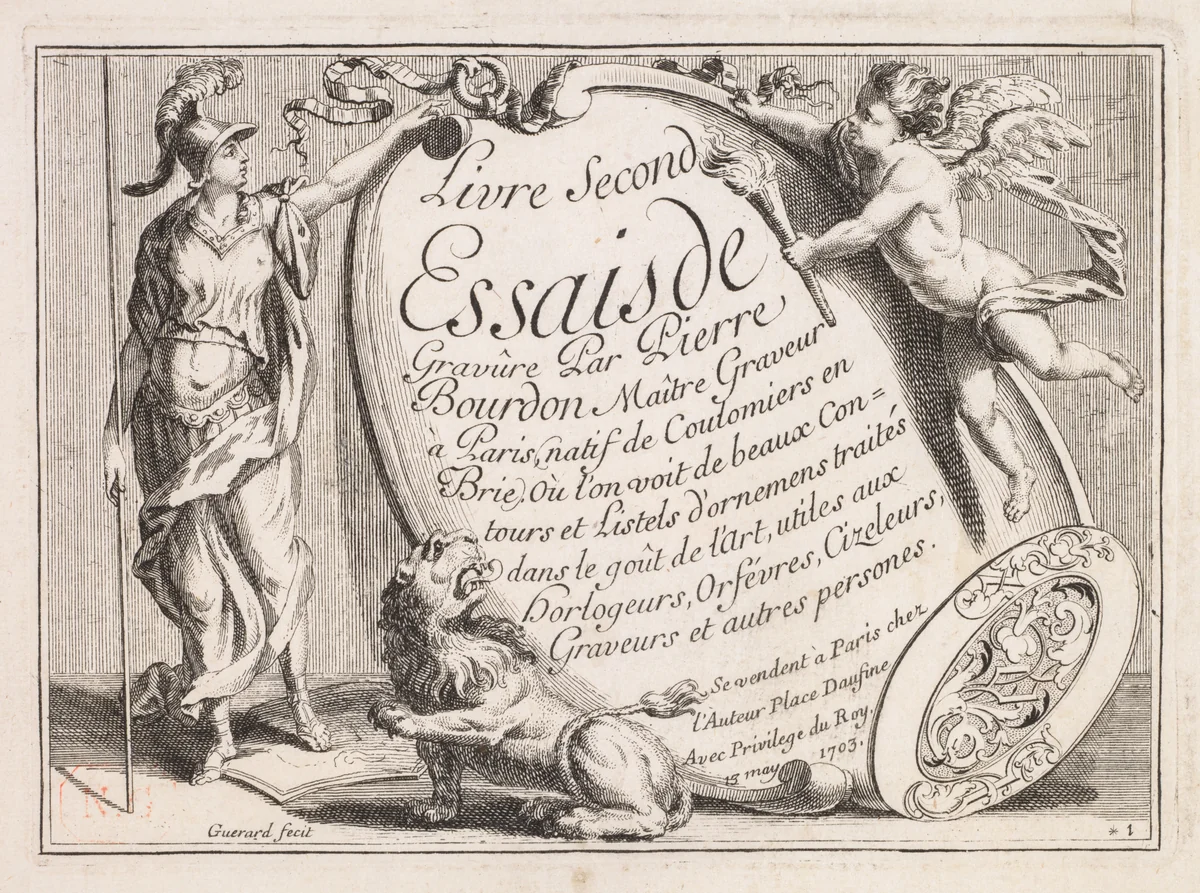 Livre Second
Essais de
Gravûre Par Pierre
Bourdon Maître Graveur
à Paris, (natif de Coulomiers en
Brie). Où l'on voit de beaux Con=
tours et Listels d'ornemens traités
dans le goût de l'Art, utiles aux
Horlogeurs, Orfévres, Cizeleurs,
Graveurs et autres persones.
Se vendent à Paris chez
l'Auteur Place Daufine
Avec Privilege du Roy.
15 may 1703.
Guerard fecit
* 1